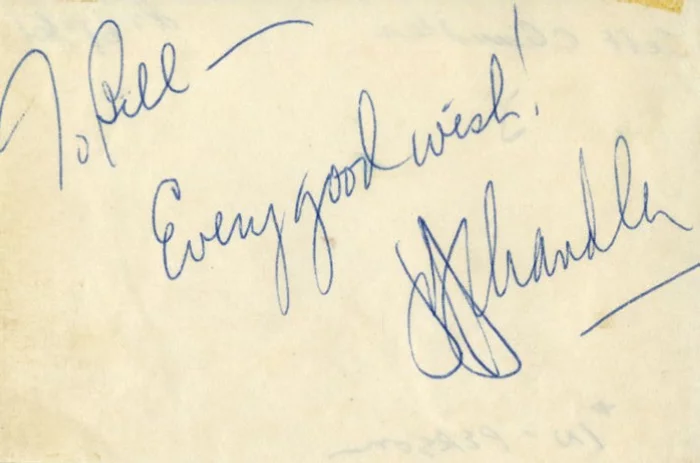 To Bill —
Every good wish!
Jeff Chandler